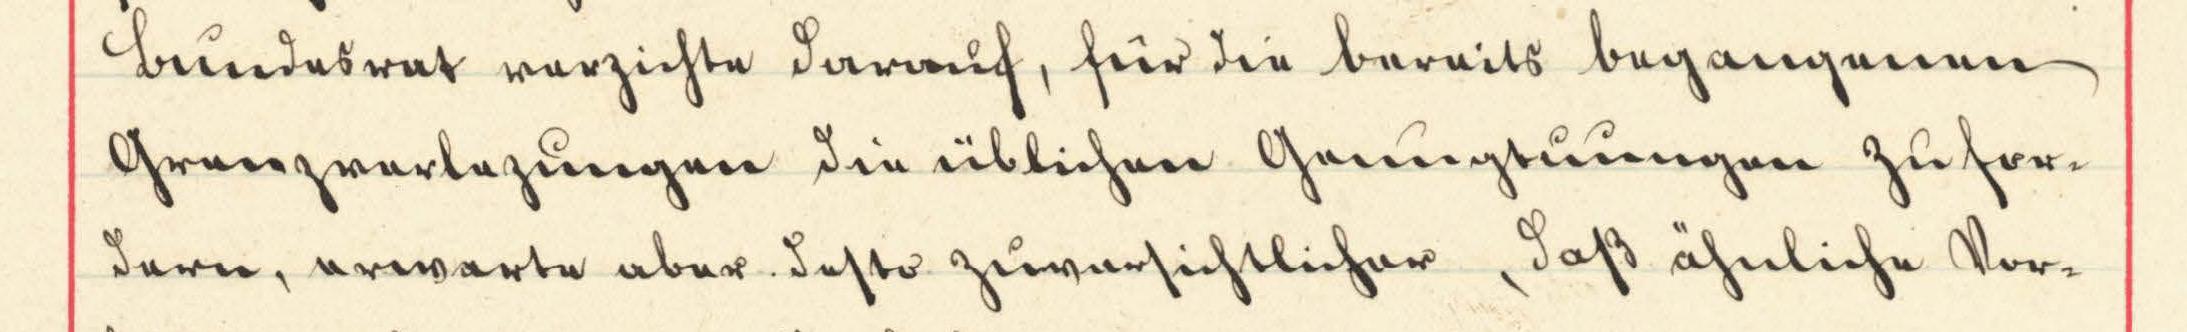 Bundesrat verzichte darauf, für die bereits begangenen
Grenzverlezungen die üblichen Genugtuungen zu for-
dern, erwarte aber desto zuversichtlicher, daß ähnliche Vor-